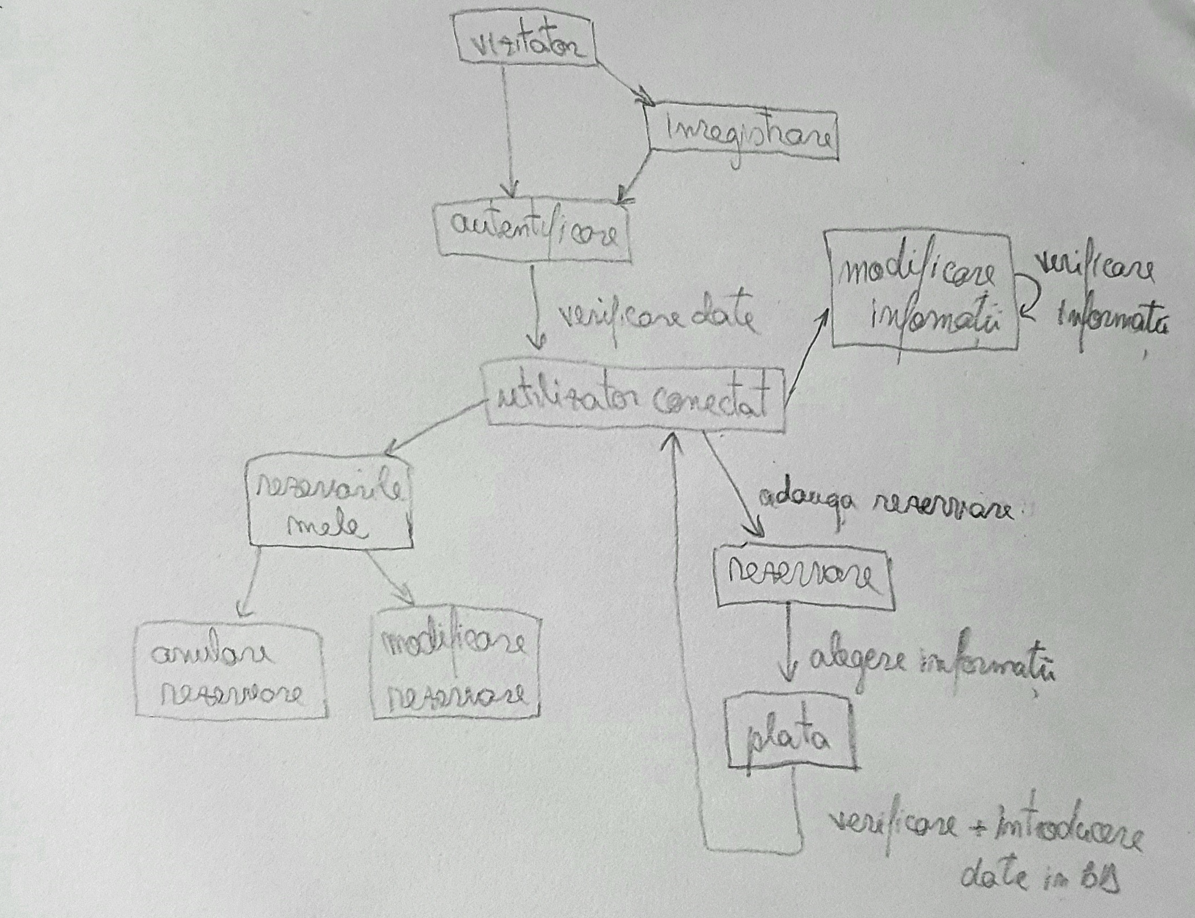 vizitator
inregistrare
autentificare
verificare date
modificare
infomații
verificare
informații
utilizator conectat
rezervările
mele
adauga rezervare
rezervare
anulare
rezervare
modificare
rezervare
alegere informații
plata
verificare + introducere
date in BD